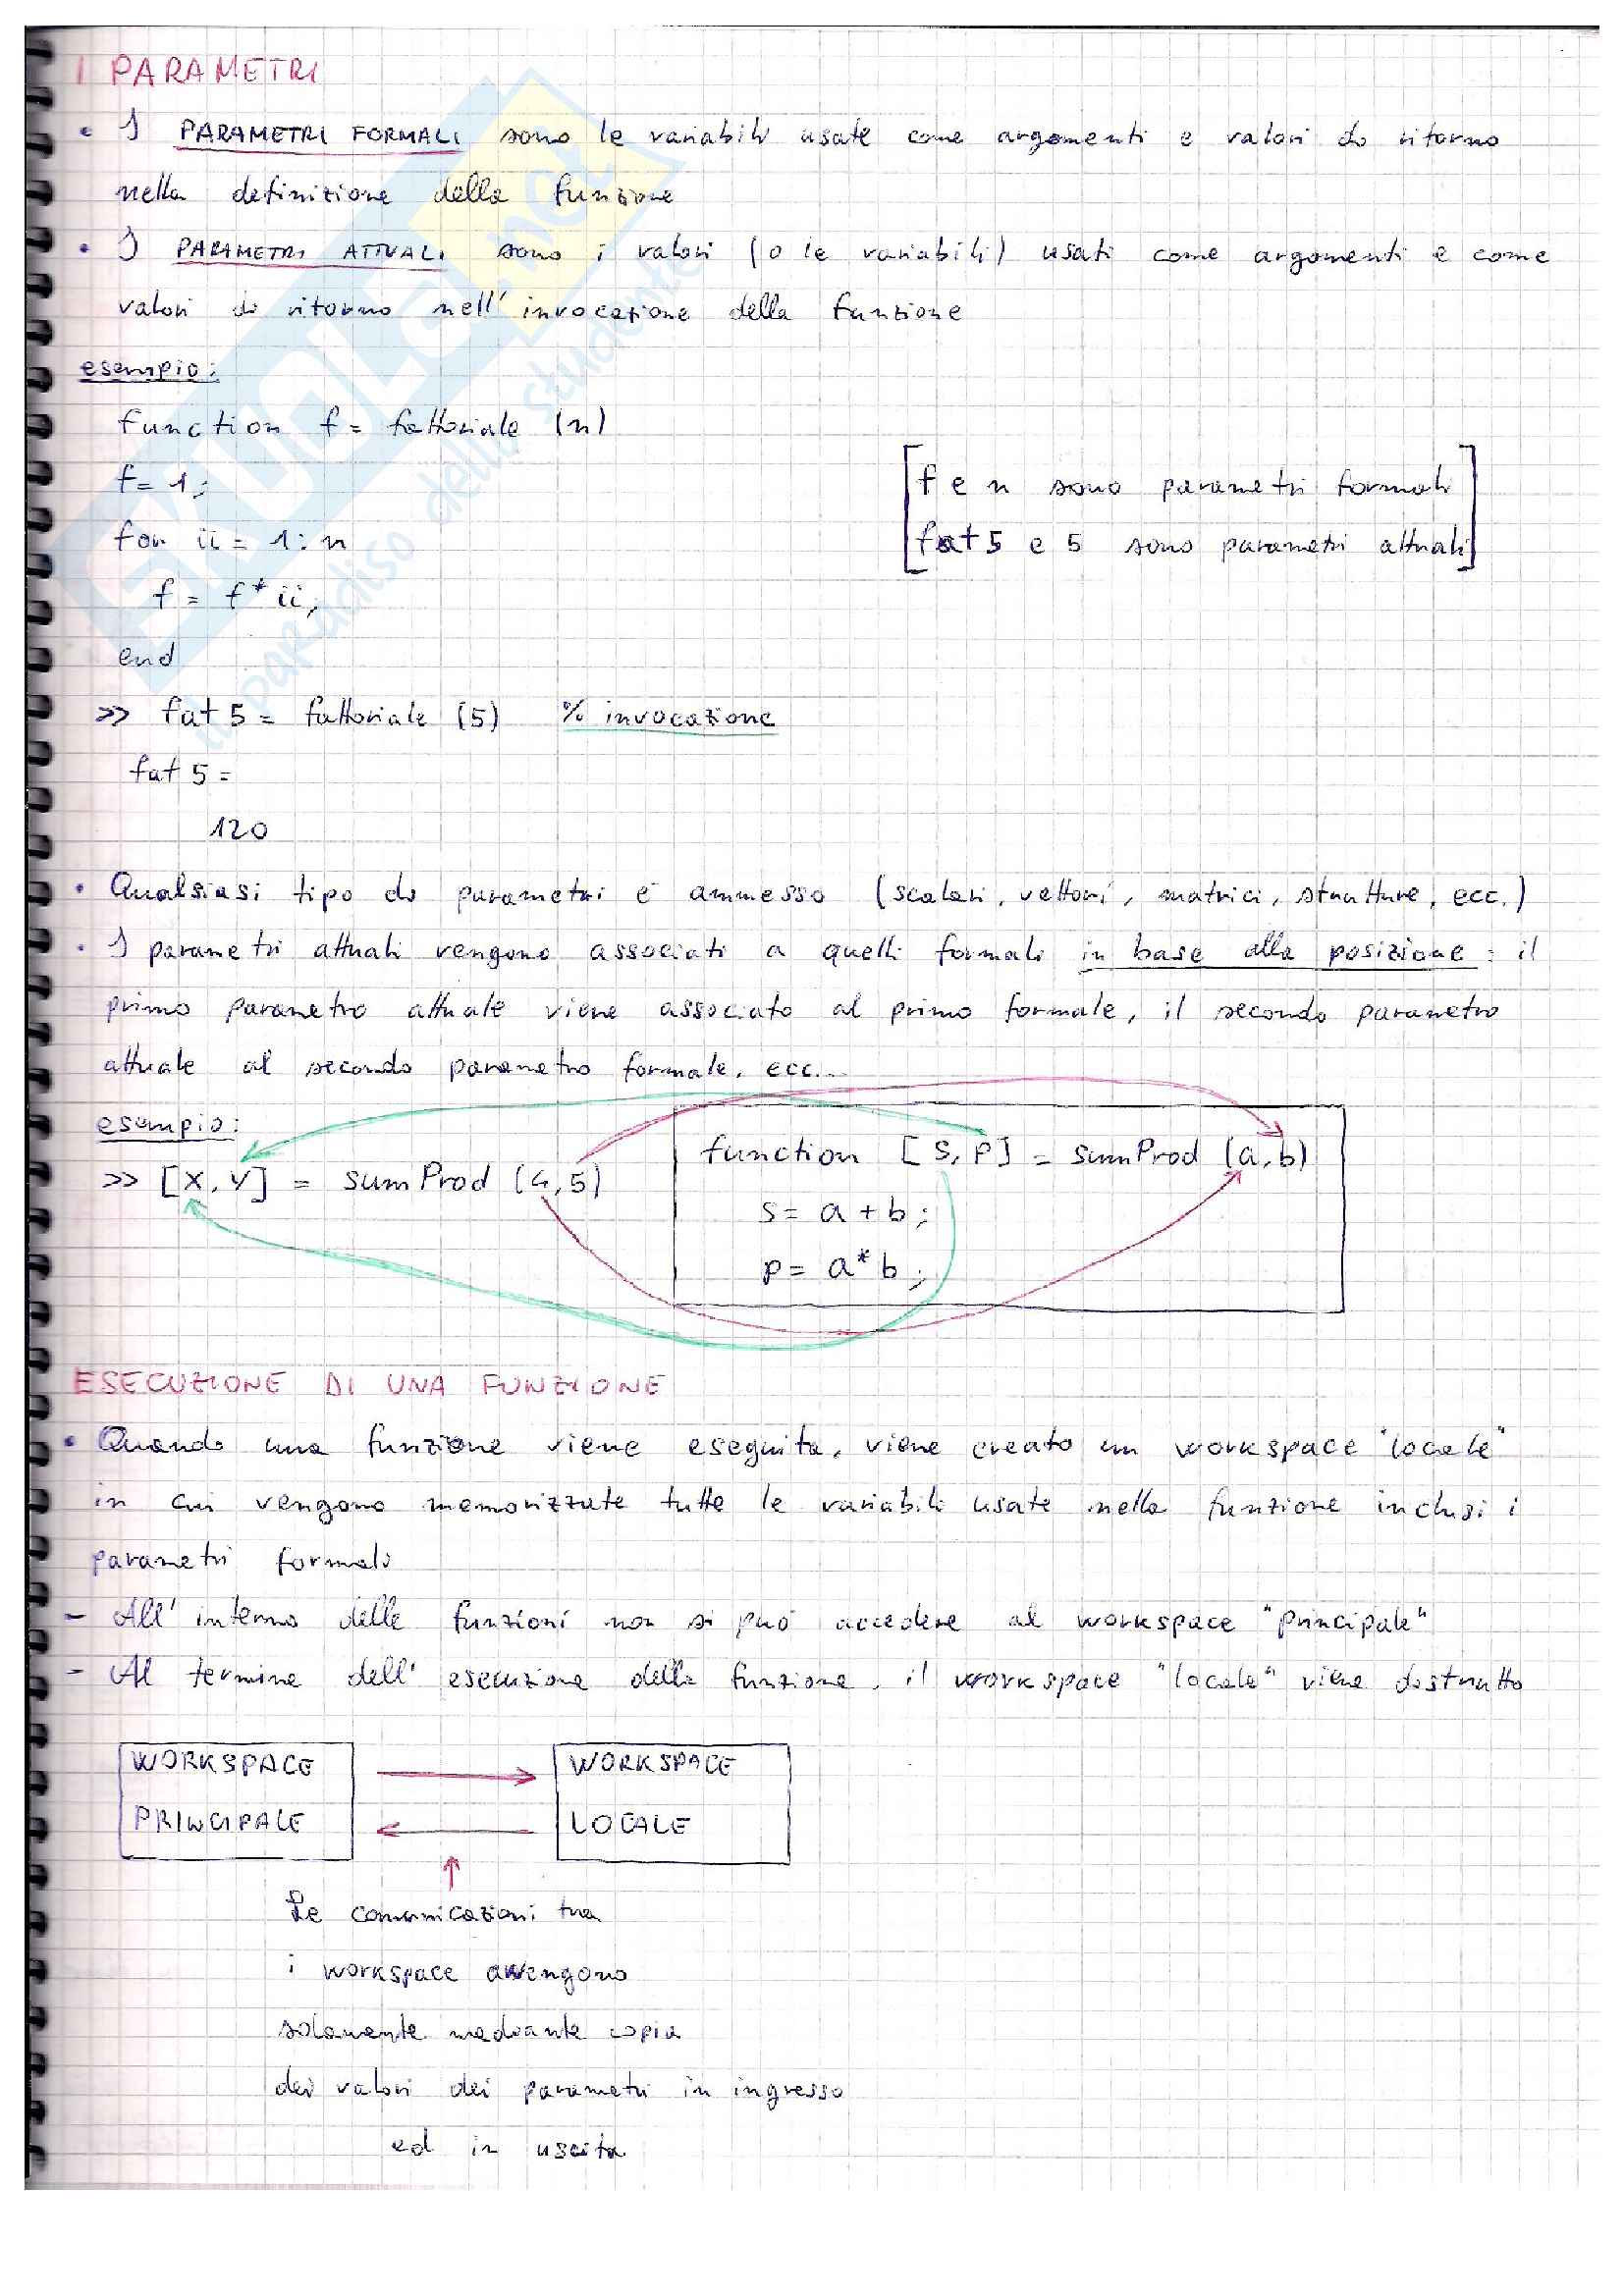 I PARAMETRI
• I PARAMETRI FORMALI sono le variabili usate come argomenti e valori di ritorno
nella definizione della funzione
• I PARAMETRI ATTUALI sono i valori (o le variabili) usati come argomenti e come
valori di ritorno nell'invocazione della funzione
esempio:
function f = fattoriale (n)
f = 1;
[f e n sono parametri formali
for ii = 1:n
fat5 e 5 sono parametri attuali]
f = f * ii;
end
>> fat5 = fattoriale (5) % invocazione
fat5 =
120
• Qualsiasi tipo di parametri è ammesso (scalari, vettori, matrici, strutture, ecc.)
• I parametri attuali vengono associati a quelli formali in base alla posizione: il
primo parametro attuale viene associato al primo formale, il secondo parametro
attuale al secondo parametro formale, ecc...
esempio:
>> [x, y] = sumProd (4,5)
function [s, p] = sumProd (a, b)
s = a + b;
p = a * b;
ESECUZIONE DI UNA FUNZIONE
• Quando una funzione viene eseguita, viene creato un workspace "locale"
in cui vengono memorizzate tutte le variabili usate nella funzione inclusi i
parametri formali
- All'interno delle funzioni non si può accedere al workspace "principale"
- Al termine dell'esecuzione della funzione, il workspace "locale" viene distrutto
WORKSPACE
PRINCIPALE
WORKSPACE
LOCALE
Le comunicazioni tra
i workspace avvengono
solamente mediante copia
dei valori dei parametri in ingresso
ed in uscita
il paradiso dello studente